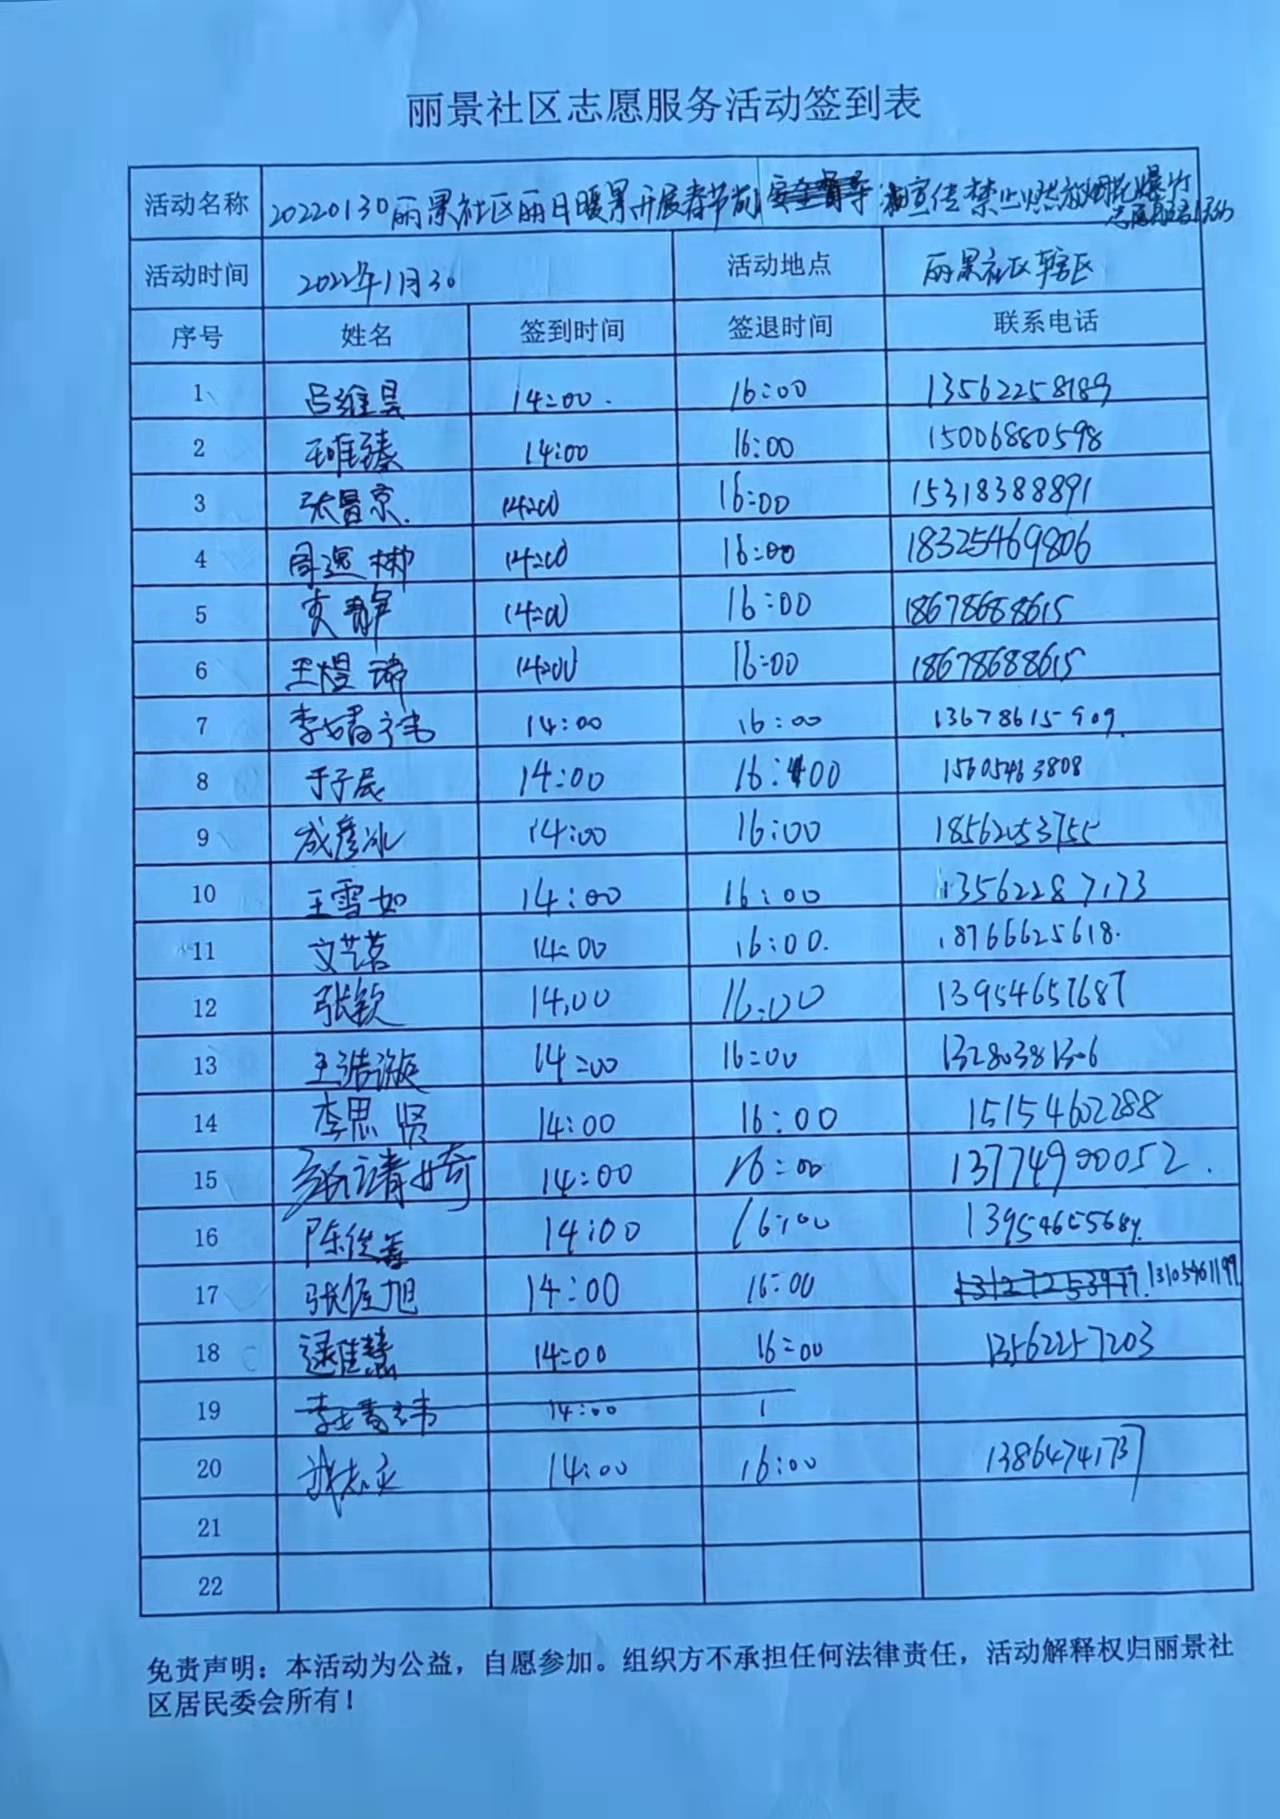 丽景社区志愿服务活动签到表
活动名称 20220130丽景社区丽日暖景开展春节前 宣传禁止燃放烟花爆竹
志愿服务活动
活动时间 2022年1月30 活动地点 丽景社区辖区
序号 姓名 签到时间 签退时间 联系电话
1 吕维昊 14:00 16:00 13562258189
2 14:00 16:00 15006880598
3 张景京 14:00 16:00 15318388891
4 周逸彬 14:00 16:00 18325469806
5 黄静 14:00 16:00 18678688615
6 王煜 14:00 16:00 18678688615
7 李婧祎 14:00 16:00 13678615909
8 于子辰 14:00 16:00 15605463808
9 成彦冰 14:00 16:00 18562053755
10 王雪如 14:00 16:00 13562287173
11 文艺茗 14:00 16:00 18766625618
12 张钦 14:00 16:00 13954657687
13 王浩 14:00 16:00 13280381306
14 李思贤 14:00 16:00 15154602288
15 14:00 16:00 13774900052
16 陈俊善 14:00 16:00 13954655689
17 张恒旭 14:00 16:00 13127253977 13105461199
18 逯佳慧 14:00 16:00 13562257203
19 李婧祎 14:00 1
20 14:00 16:00 13864741737
21
22
免责声明：本活动为公益，自愿参加。组织方不承担任何法律责任，活动解释权归丽景社
区居民委会所有！